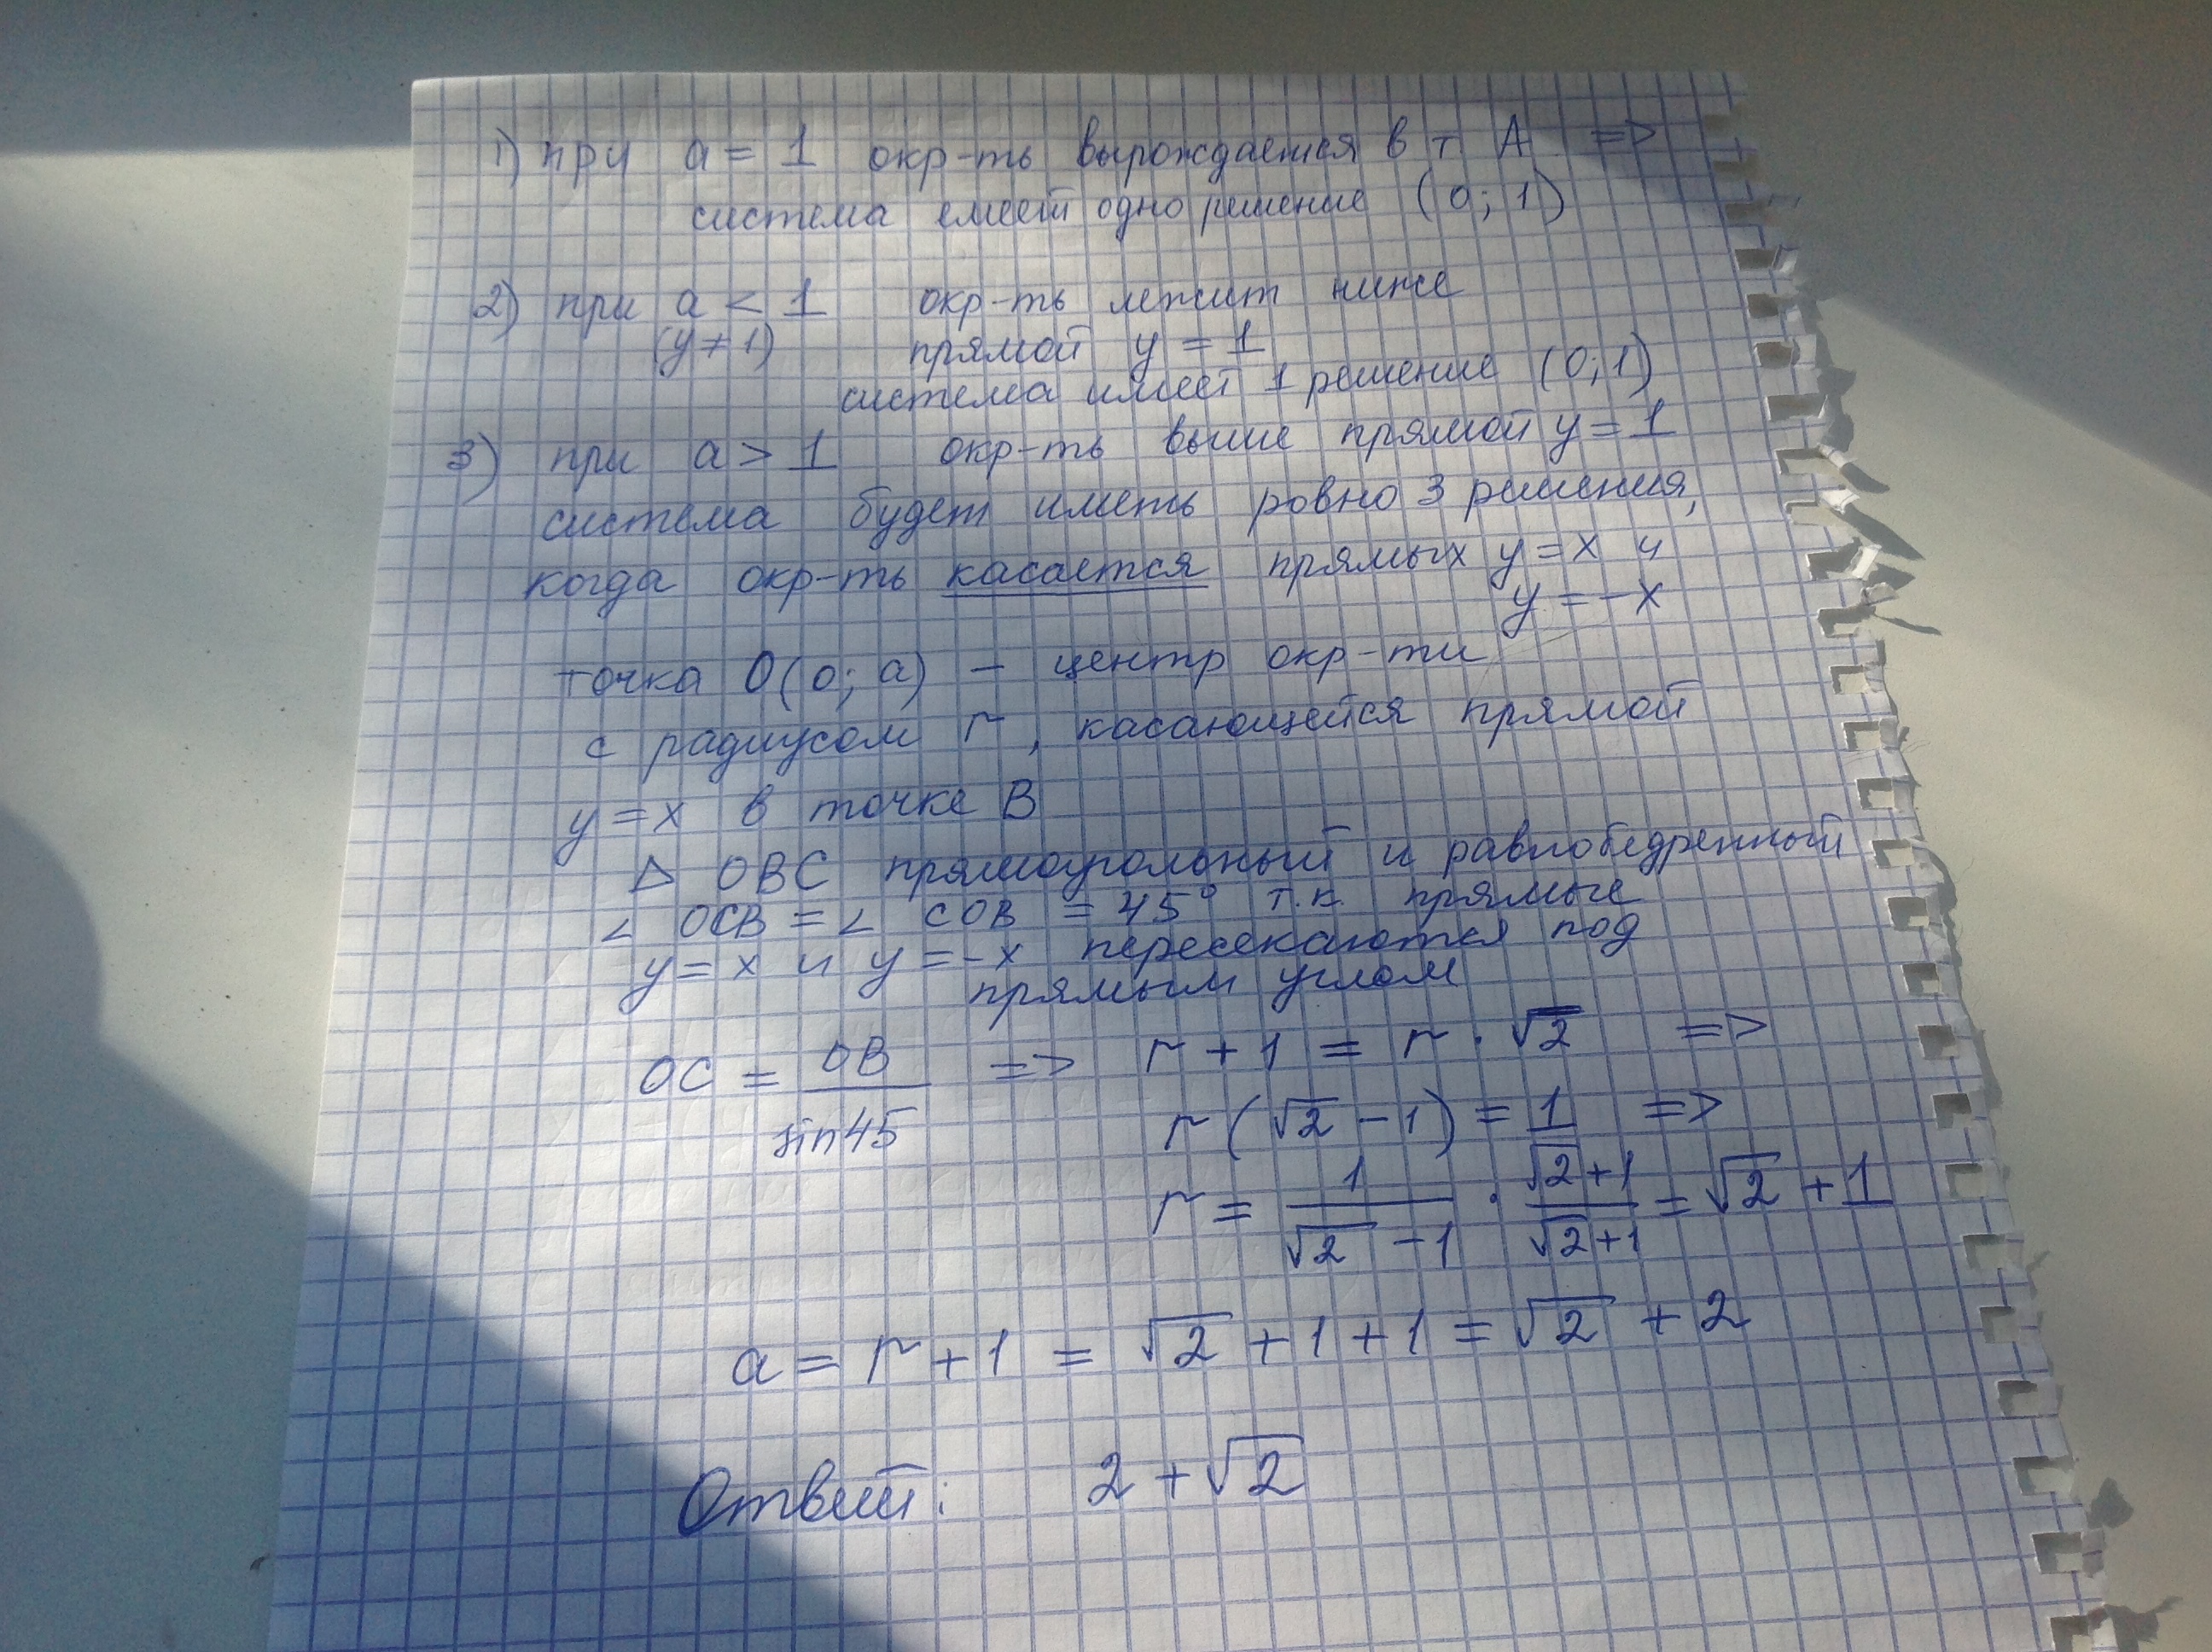 1) при a = 1 окр-ть вырождается в т. А =>
система емеет одно решение (0; 1)
2) при a < 1 окр-ть лежит ниже
(y ≠ 1) прямой y = 1
система имеет 1 решение (0; 1)
3) при a > 1 окр-ть выше прямой y = 1
система будет иметь ровно 3 решения,
когда окр-ть касается прямых y = x и
y = -x
точка O(0; a) – центр окр-ти
с радиусом r, касающейся прямой
y = x в точке B
Δ OBC прямоугольный и равнобедренный
∠ OCB = ∠ COB = 45° т.к. прямые
y = x и y = -x пересекаются под
прямым углом
OC = OB / sin45 => r + 1 = r · √2 =>
r (√2 - 1) = 1 =>
r = 1 / (√2 - 1) · (√2 + 1) / (√2 + 1) = √2 + 1
a = r + 1 = √2 + 1 + 1 = √2 + 2
Ответ: 2 + √2